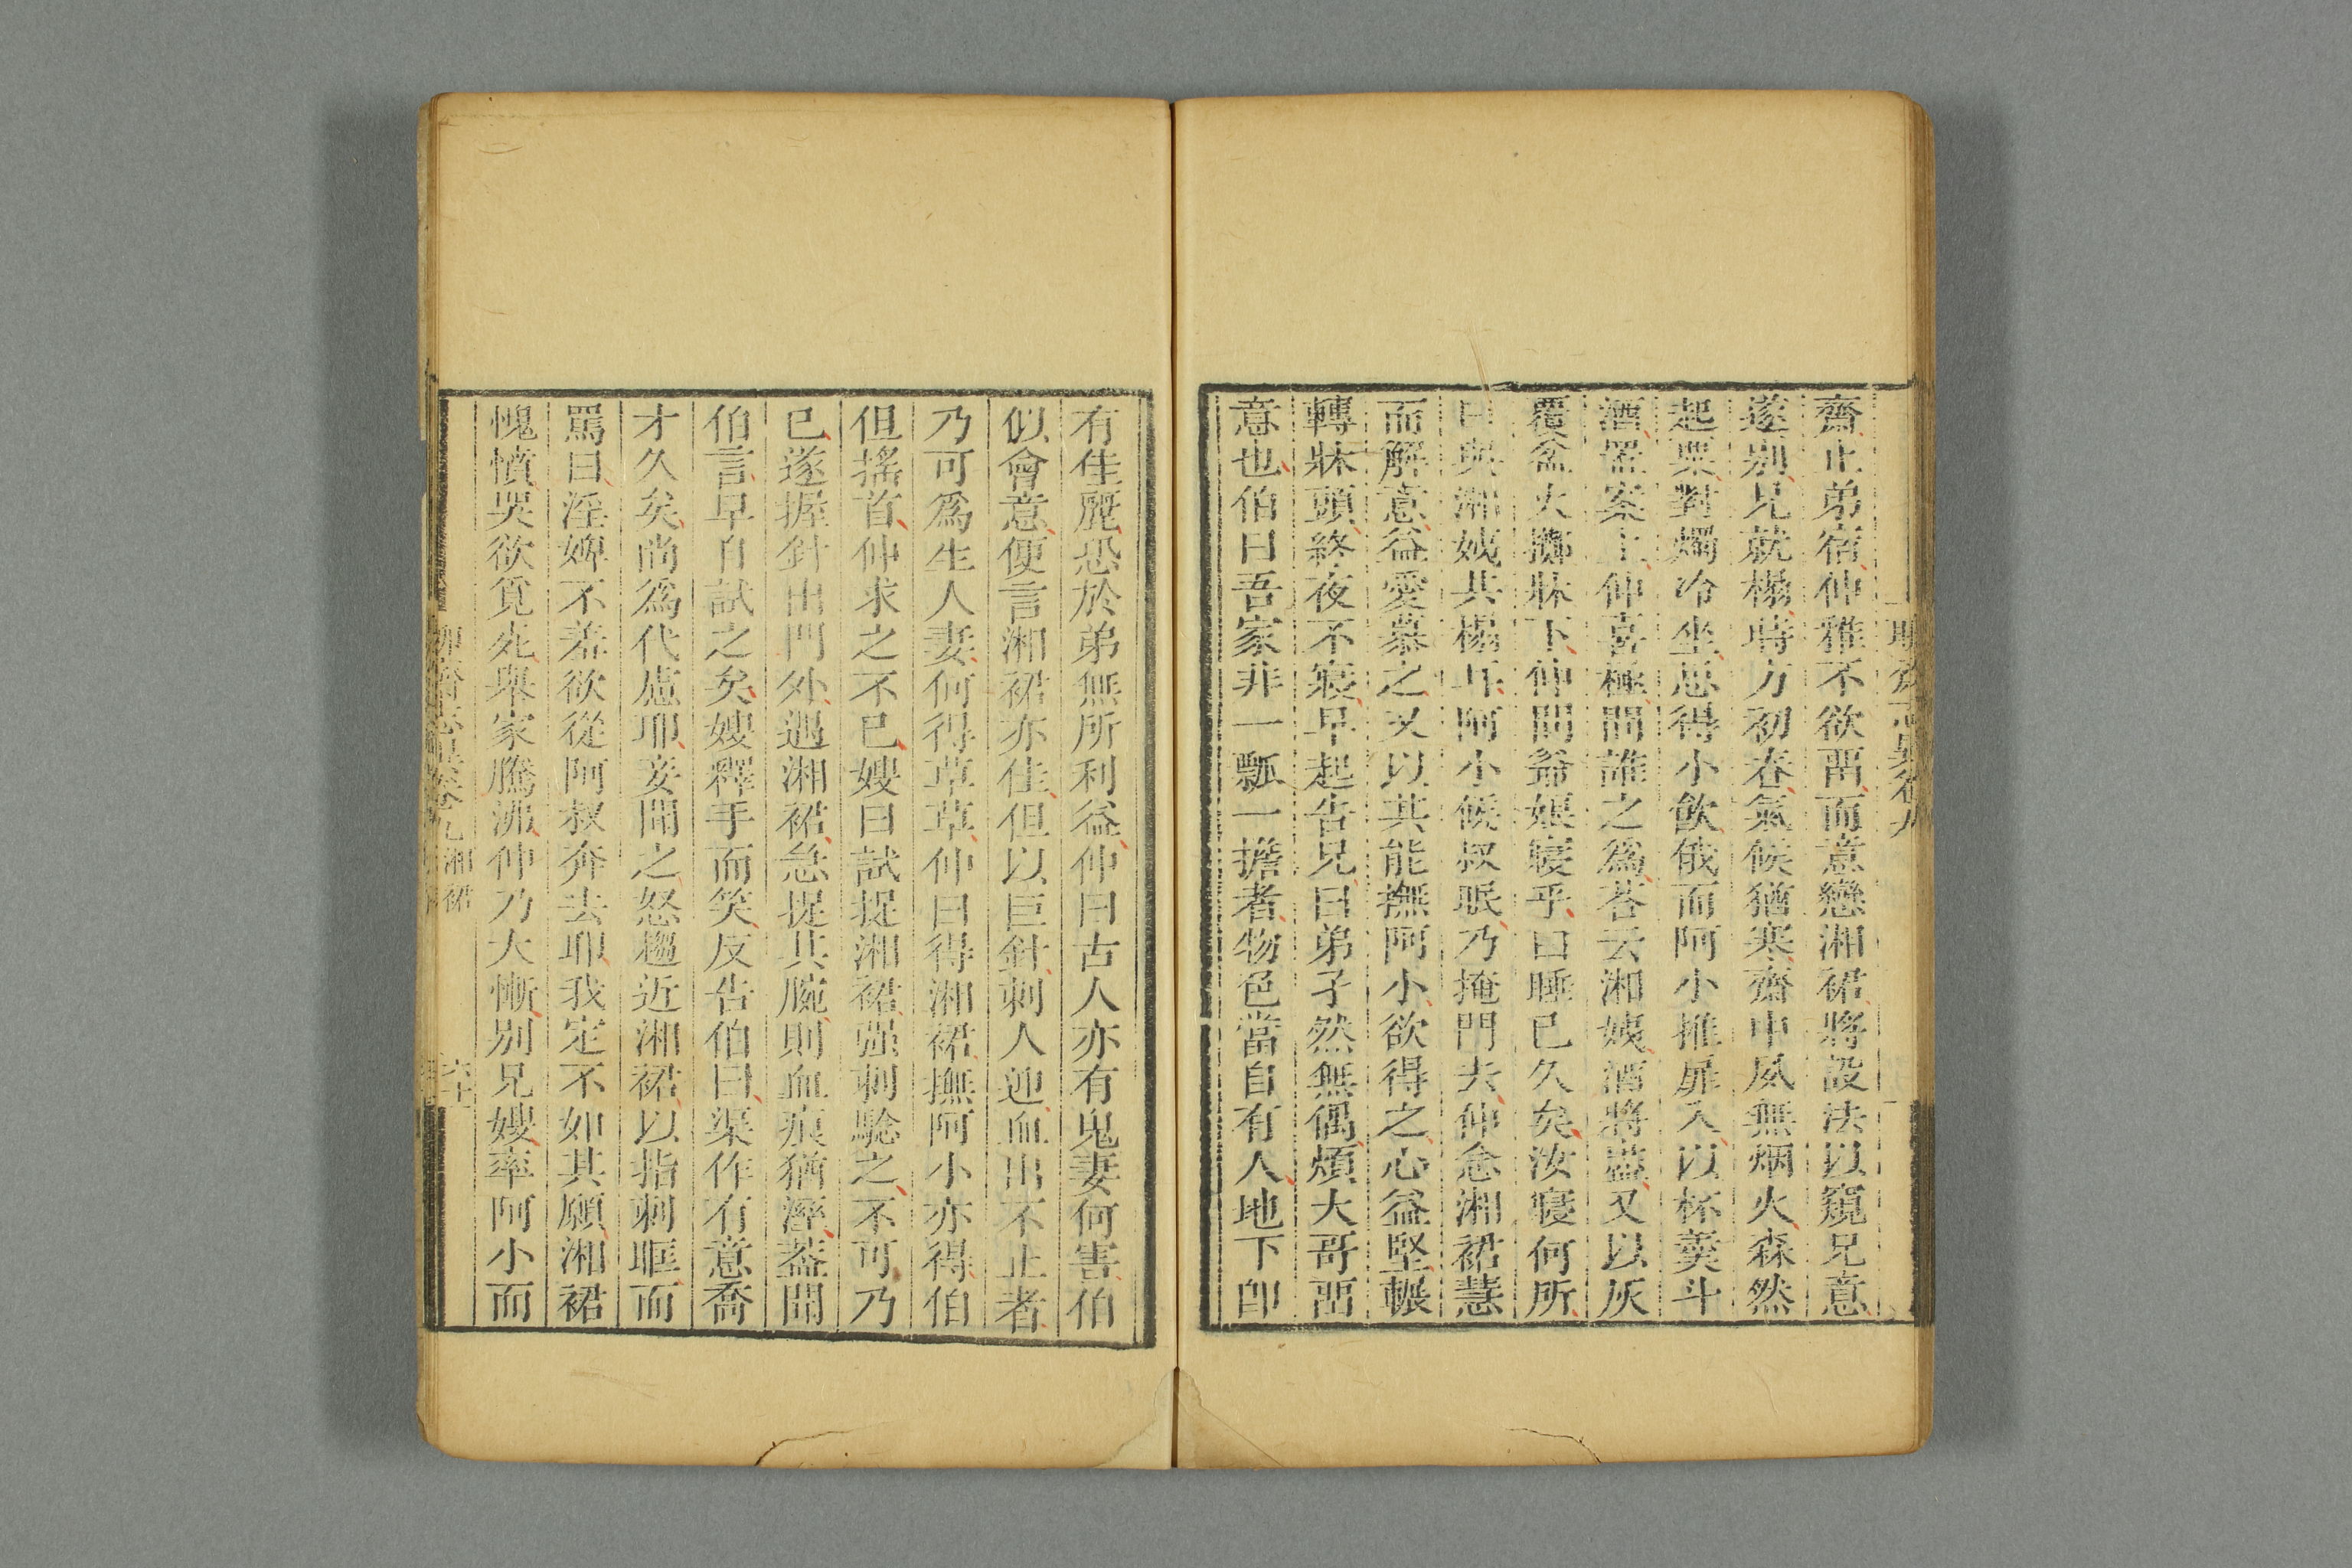 齋止弟宿仲雅不欲畱而意戀湘裙將設法以窺兄意
遂别兄就榻時方初春氣候猶寒齋中夙無烟火森然
起粟對燭冷坐思得小飲俄而阿小推扉入以杯羹斗
酒置案上仲喜極問誰之爲荅云湘姨酒將盡又以灰
覆盆火擲牀下仲問爺娘寢乎曰睡已久矣汝寢何所
曰與湘姨共榻耳阿小候叔眠乃掩門去仲念湘裙慧
而解意益愛慕之又以其能撫阿小欲得之心益堅輾
轉牀頭終夜不寢早起告兄曰弟孑然無偶煩大哥畱
意也伯曰吾家非一瓢一擔者物色當自有人地下卽
有佳麗恐於弟無所利益仲曰古人亦有鬼妻何害伯
似會意便言湘裙亦佳但以巨針刺人迎血出不止者
乃可爲生人妻何得草草仲曰得湘裙撫阿小亦得伯
但搖首仲求之不已嫂曰試捉湘裙强刺驗之不可乃
已遂握針出門外遇湘裙急捉其腕則血痕猶溼葢聞
伯言早自試之矣嫂釋手而笑反告伯曰渠作有意喬
才久矣尚爲代慮耶妾聞之怒趨近湘裙以指刺眶而
罵曰淫婢不羞欲從阿叔奔去耶我定不如其願湘裙
愧憤哭欲覓死舉家騰沸仲乃大慚别兄嫂率阿小而
卷九 湘裙
六十